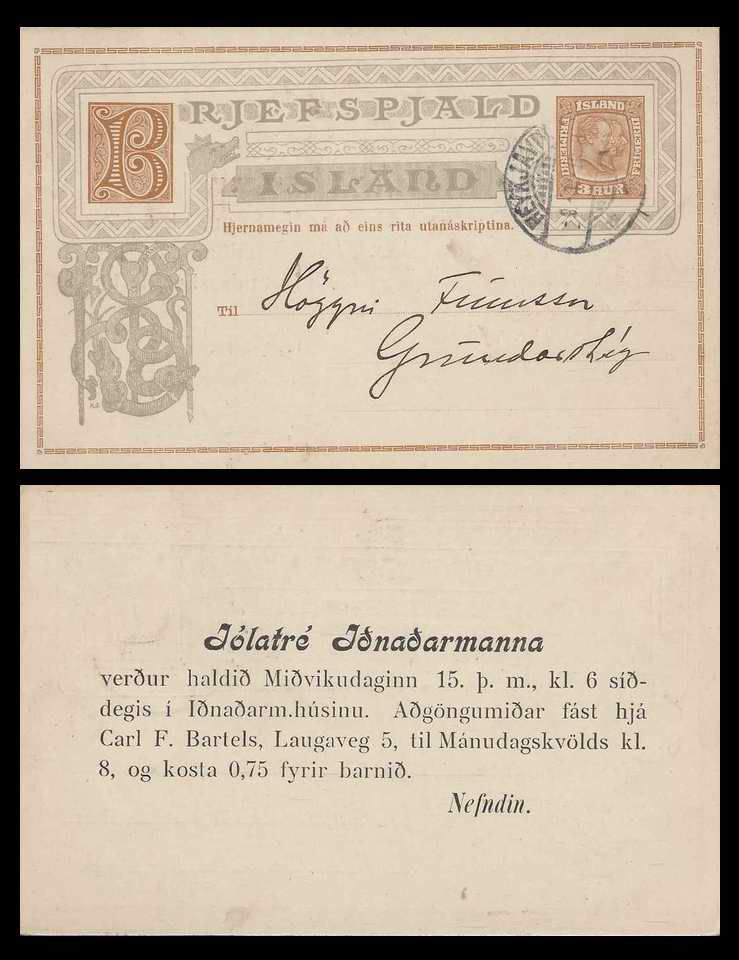 BRJEFSPJALD
ÍSLAND
ÍSLAND
FRÍMERKI FRÍMERKI
3 AUR
REYKJAVÍK
Hjernamegin má að eins rita utanáskriptina.
Til Högni Finnsson
Grundarstíg
Jólatré Iðnaðarmanna
verður haldið Miðvikudaginn 15. þ. m., kl. 6 síð-
degis í Iðnaðarm.húsinu. Aðgöngumiðar fást hjá
Carl F. Bartels, Laugaveg 5, til Mánudagskvölds kl.
8, og kosta 0,75 fyrir barnið.
Nefndin.